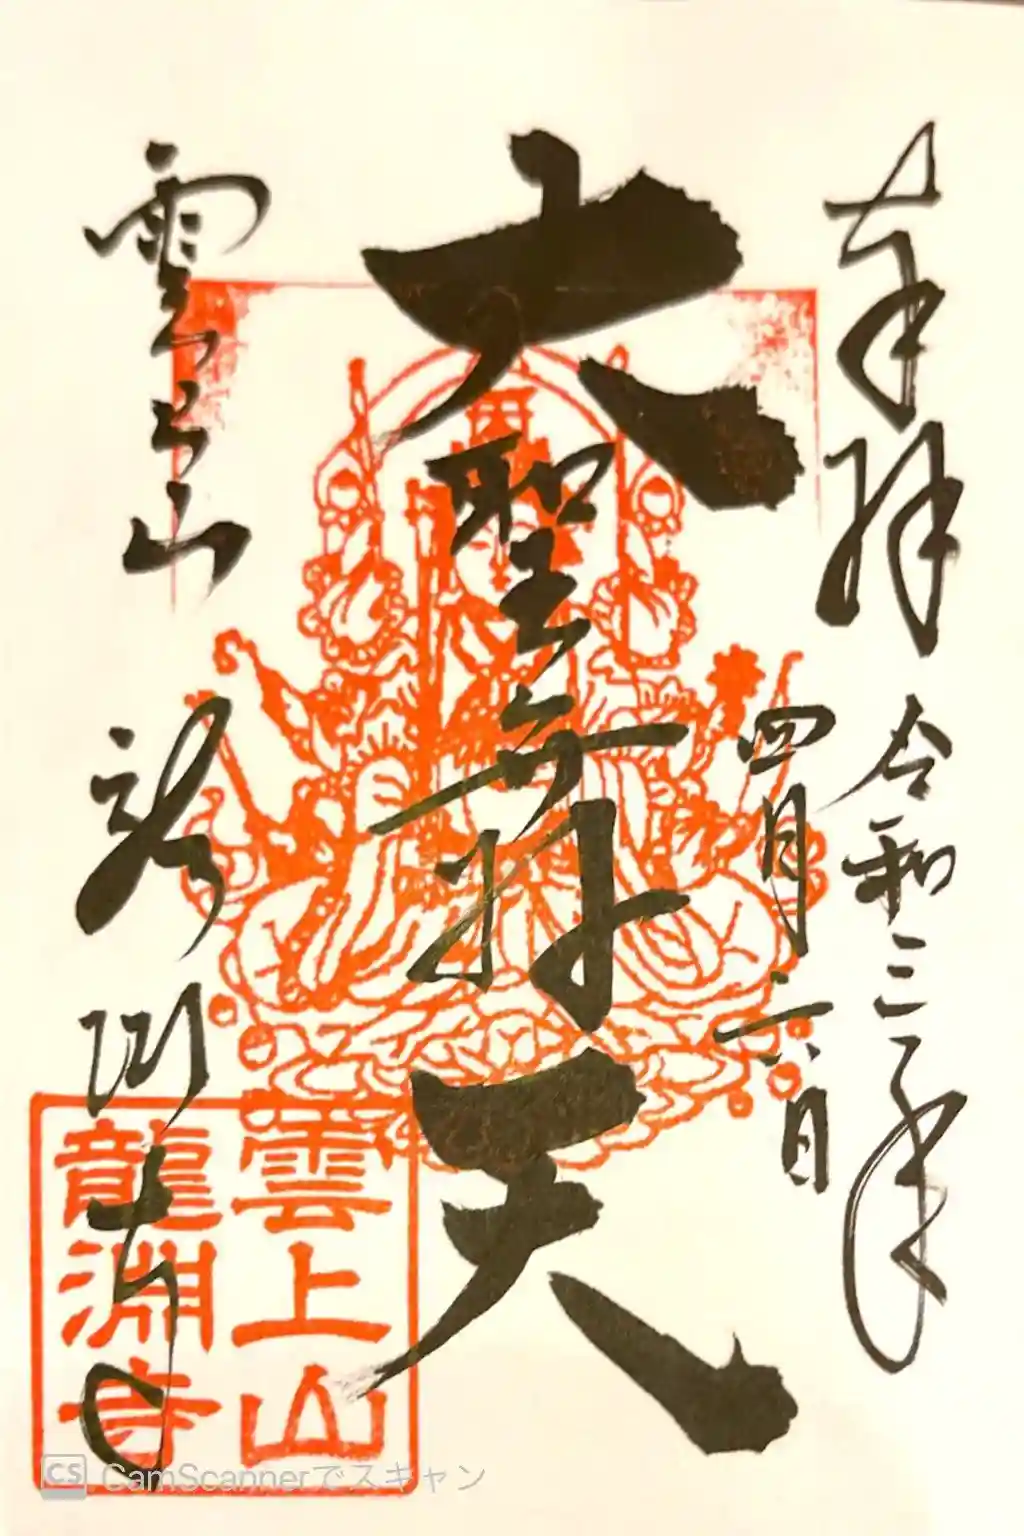 奉拝
令和三年
四月六日
大聖弁財天
雲上山
龍渕寺
雲上山
龍淵寺
CS CamScannerでスキャン